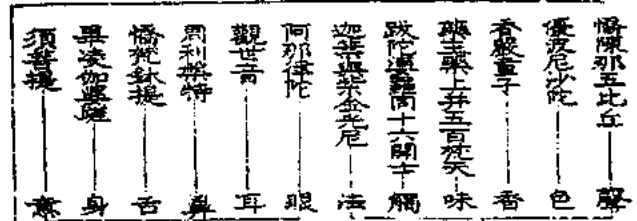 憍陳那五比丘 聲
優波尼沙陀 色
香嚴童子 香
藥王藥上并五百梵天 味
跋陀婆羅同十六開士 觸
迦葉及紫金光尼 法
阿那律陀 眼
觀世音 耳
周利槃特 鼻
憍梵鉢提 舌
畢凌伽婆蹉 身
須菩提 意